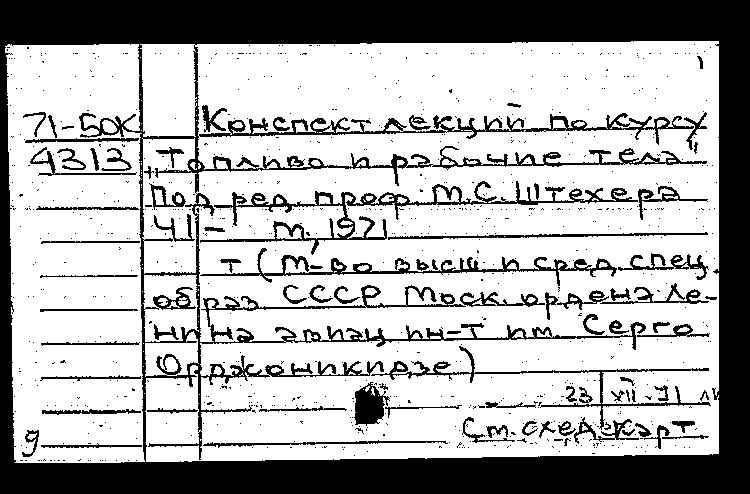 71-50К Конспект лекций по курсу
4313 "Топливо и рабочие тела"
Под ред. проф. М.С. Штехера
Ч1 - М., 1971
т (М-во высш и сред. спец.
образ. СССР. Моск. ордена Ле-
нина авиац ин-т им. Серго
Орджоникидзе)
23 XII-71
См. след карт
9